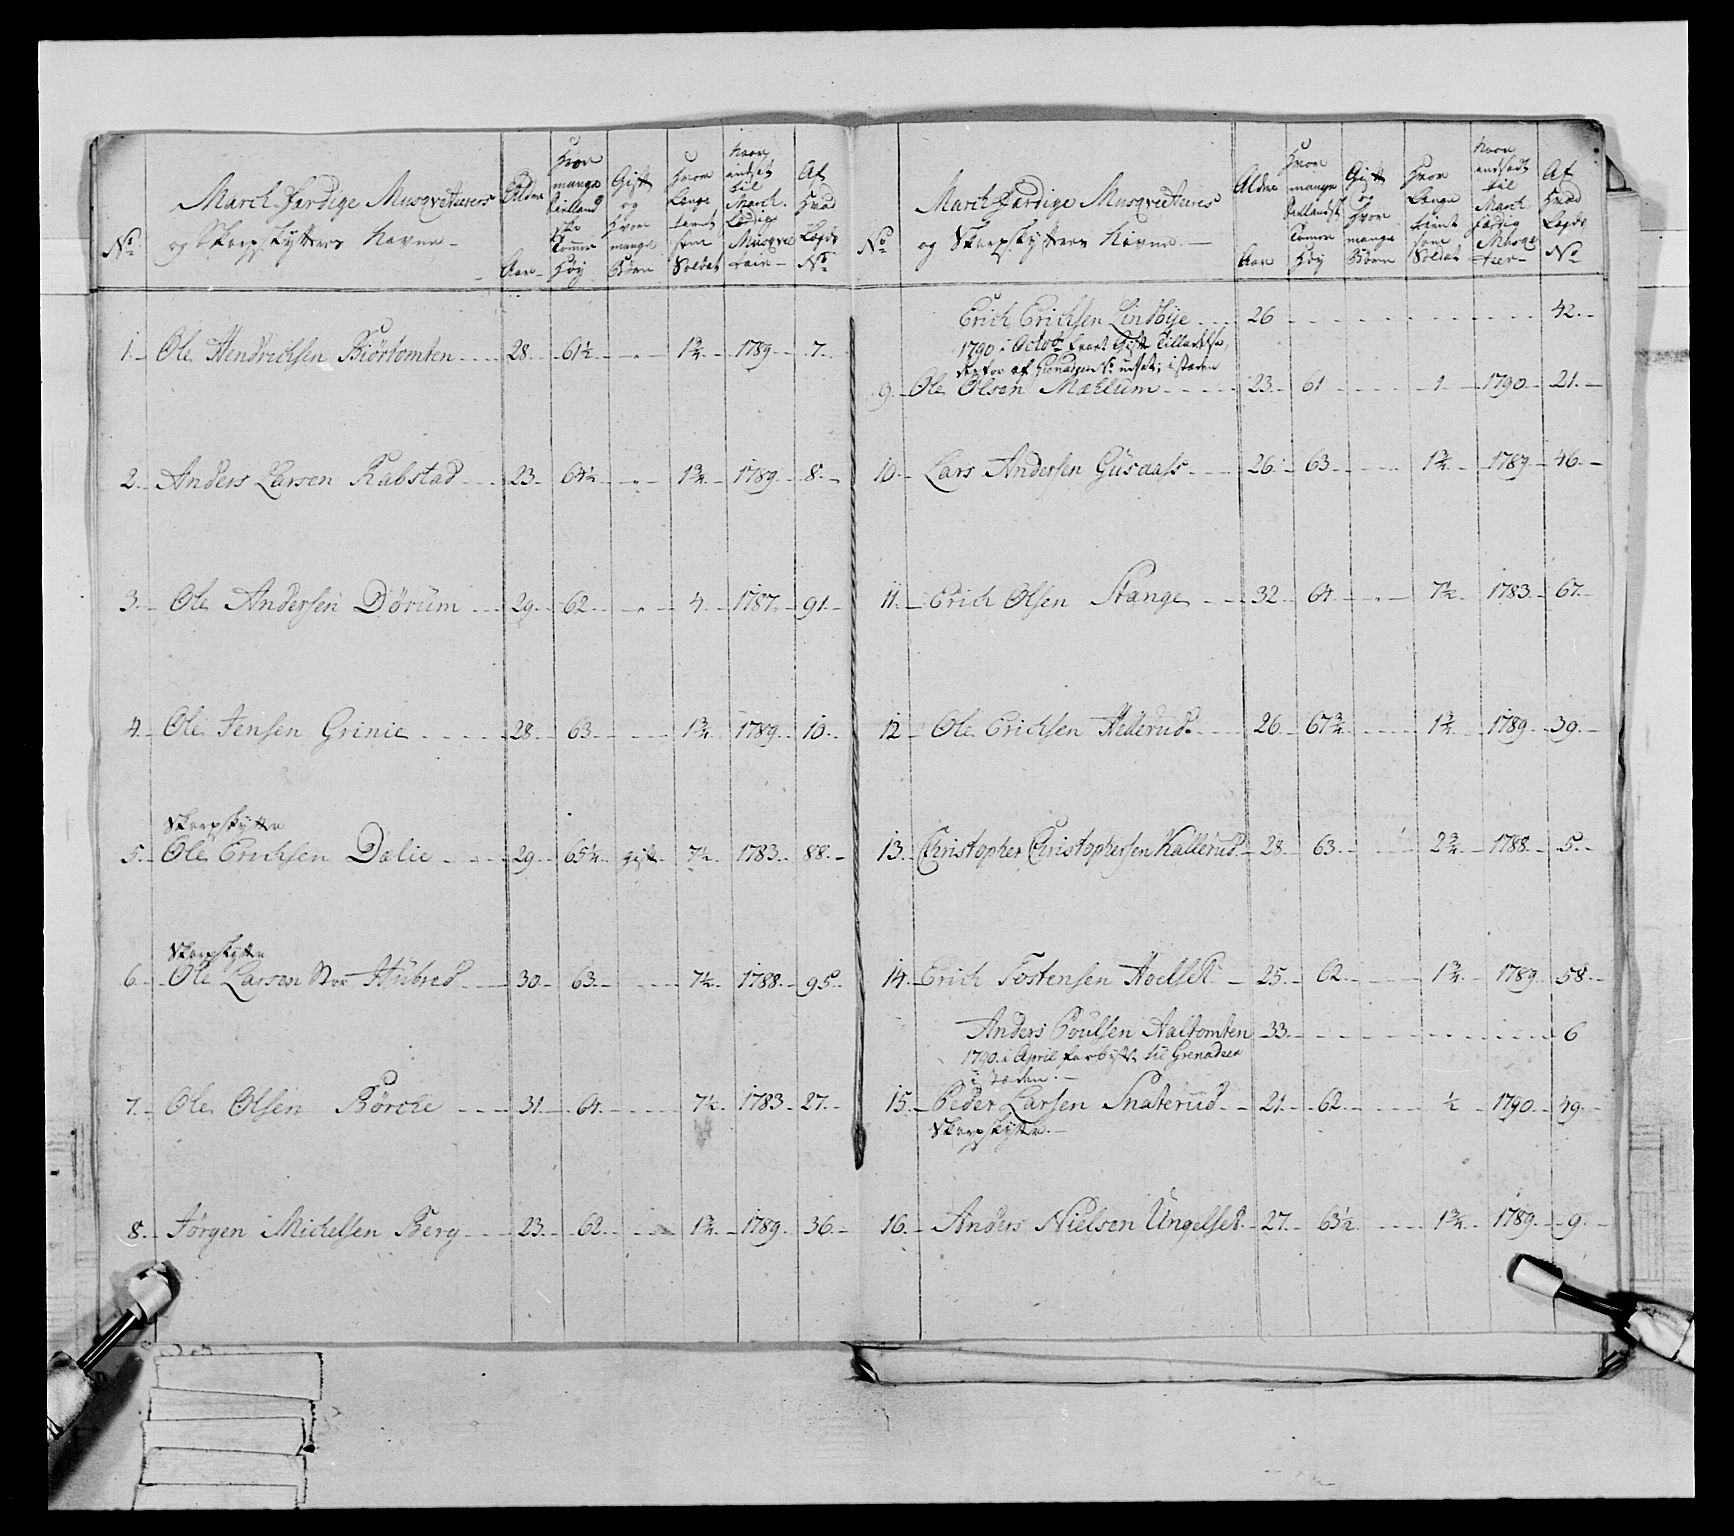 No
March-færdige Musqveteerers
og Skarpskytters Navne
Alder
Aar
Hvor
mange
Siellandske
Tomme
Høy
Gift
og
Hvor
mange
Børn
Hvor
Længe
tient
som
Soldat
Naar
indsat
til
March-
færdig
Musqve
teer
Af
Hvad
Lægds
No
1. Ole Hendrichsen Biörtomten 28. 61½ 1¾ 1789 7.
2. Anders Larsen Rabstad 23. 64½ 1¾ 1789 8.
3. Ole Andersen Dörum 29. 62 4. 1787. 91.
4. Ole Jensen Grinie 28. 63. 1¾ 1789. 10.
Skarpskytte
5. Ole Erichsen Dalie 29. 65¼ gift 7½ 1783. 88.
Skarpskytte
6. Ole Larsen Nor Hubred 30. 63. 7½ 1788. 95.
7. Ole Olsen Börche 31. 64. 7½ 1783. 27.
8. Jörgen Michelsen Berg 23. 62. 1¾ 1789. 36.
No
March-færdige Musqveteerers
og Skarpskytters Navne.
Alder
Aar
Hvor
mange
Siellandsk
Tomme
Høy
Gift
og
Hvor
mange
Børn
Hvor
Længe
tient
som
Soldat
Naar
indsadt
til
March
færdig
Musqve
teer
Af
Hvad
Lægds
No
Erich Erichsen Lindbye 26 42.
1790 i Octobr
9. Ole Olsen Mæhlum 23. 61 1. 1790. 21.
10. Lars Andersen Gusaass 26. 63. 1¾ 1789. 46.
11. Erich Olsen Stange 32. 64. 7½ 1783. 67.
12 Ole Erichsen Hellerud 26. 67¾ 1¾ 1789. 39.
13. Christopher Christophersen Kallerud 28. 63. 2¾ 1788. 5.
14. Erich Tostensen Hoelset 25. 62. 1¾ 1789. 58.
Anders Poulsen Aaltomten 33. 6
1790 i April forbytt til Grenadeer
i stæden.
15. Peder Larsen Snaterud 21. 62. ½ 1790. 49.
Skarpskytte.
16. Anders Nielsen Ungelset 27. 63½ 1¾ 1789. 9.